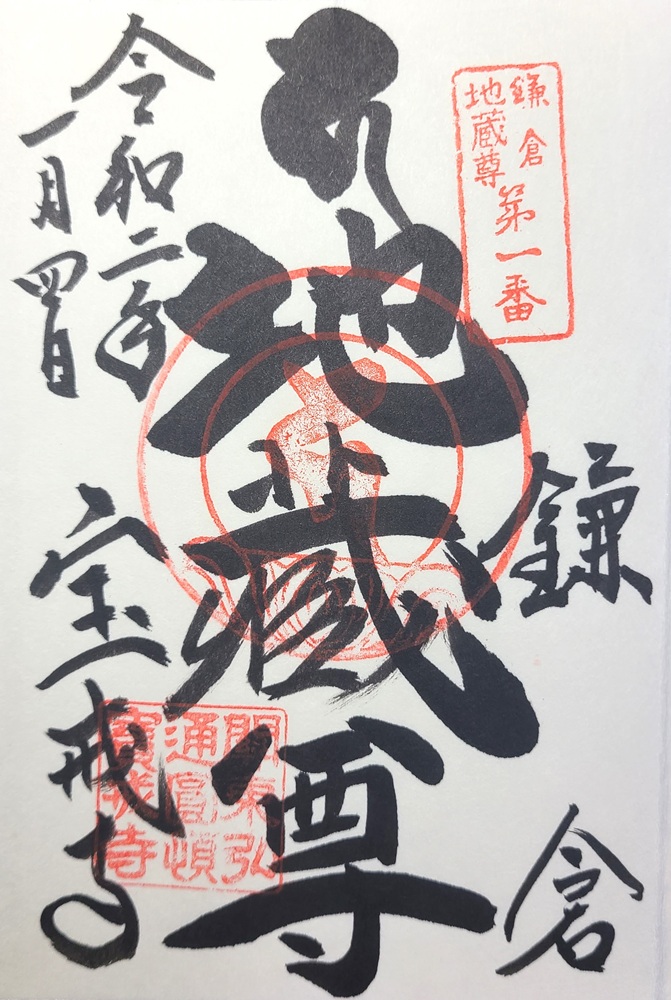 鎌倉
地蔵尊
第一番
鎌倉
地蔵尊
令和二年
一月四日
宝戒寺
關東弘
通圓頓
寳戒寺